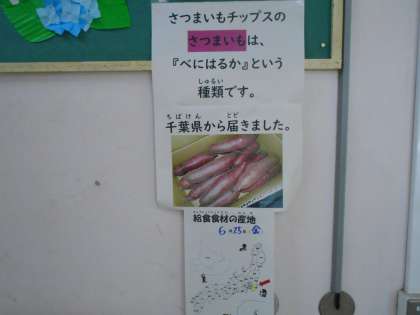 さつまいもチップスの
さつまいもは、
『べにはるか』という
しゅるい
種類です。
ちばけん とど
千葉県から届きました。
給食食材の産地
6月25日(金)